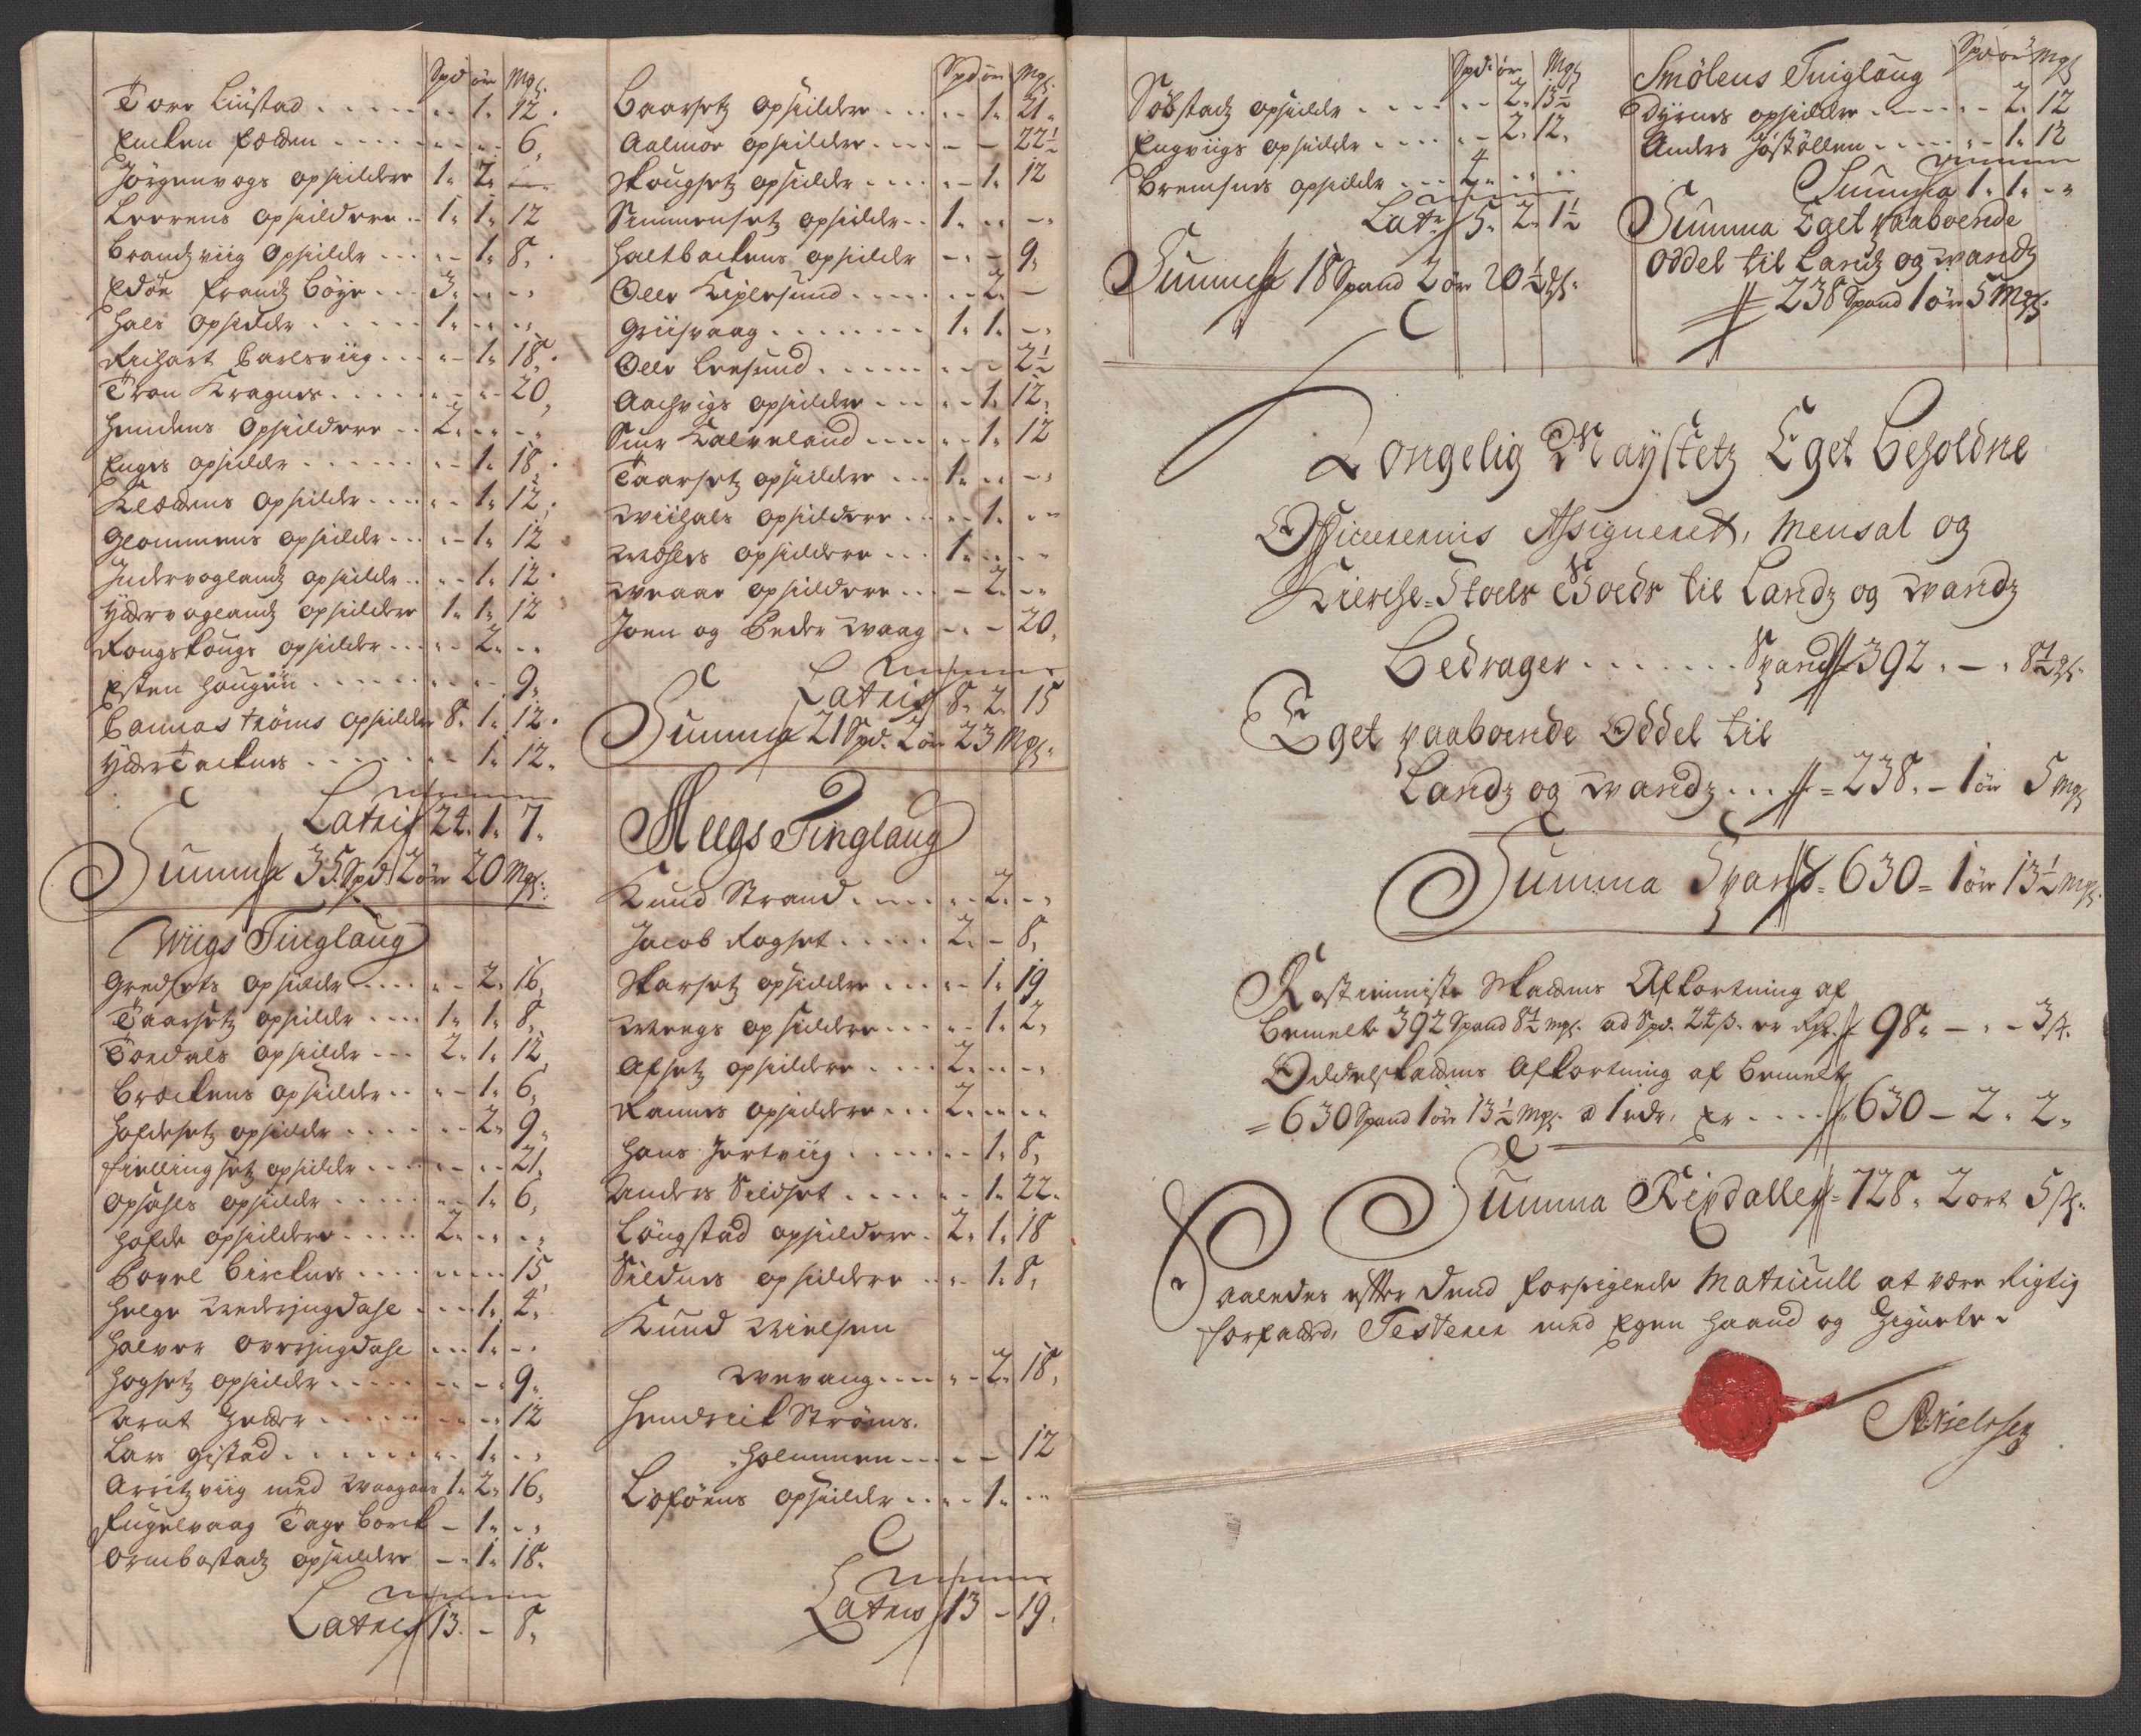 Spd ör Mgl.
Tore Liustad . . . . . . - - 1. 12.
Encken Fædden . . . . . . . . 6.
Jörgenvogs opsidder 1. 2. -
Leerens opsiddere . . 1. 1. 12
Brandzviig opsidder . . . - - 1. 8.
Edöe Frandz Böye . . 3. - -
Hals opsidder . . . . . . 1. - -
Richart Carlsviig . . . - - 1. 18.
Tron Kragnes . . . . . - - - 20.
Hendens opsiddere . . 2. - -
Enges opsidder . . . . . . - - 1. 18.
Kleddens opsidder . . . - - 1. 12.
Glommens opsidder . . . - - 1. 12
Indervoglandz opsidder . . - - 1. 12.
Yddervoglandz opsiddere 1. 1. 12
Rongskougs opsidder . . . - - 2. -
Esten Haugen . . . . . . . . 9.
Bannastrøms opsidder 8. 1. 12.
Ydder Tacknes . . . . . . 1. 12.
Lateris 24. 1. 7.
Summa 35. Spd. 2 ör 20 Mgl.
Wiigs Tinglaug
Gredsets opsidder . . . . - - 2. 16.
Taarsetz opsidder . . . . 1. 1. 8.
Tordals opsidder . . . 2. 1. 12
Brækens opsidder . . - - 1. 6.
Hofdesetz opsidder . . . . . - - 2. 9.
Fiellingsetz opsidder . . . . - - 21.
Opsahls opsidder . . . . . - - 1. 6.
Hofde opsiddere . . . . . 2. - -
Povel Bircknes . . . . . . . . 15.
Helge Nedrejugdahl . . . 1. 4.
Halvor Overjugdahl . . . 1. - -
Hogsetz opsidder . . . . . - - 9.
Arnt Hedder . . . . . . . - - 12
Lars Gistad . . . . . . . - 1. - -
Arritzviig med Waagens 1. 2. 16.
Fugelvaag Tage Borck - 1. - -
Ormbostadz opsidder - 1. 18.
Lateris 13. - 8.
Spd ör Mgl.
Baarsetz opsiddere . . . . 1. 21.
Aalmoe opsiddere . . . . - - 22½
Skougsetz opsidder . . . . - 1. 12
Semmensetz opsidder . . 1. - -
Holtbackens opsidder - - 9.
Olle Kiplesund . . . . . . 2. -
Griisvaag . . . . . . . . 1. 1. -
Olle Leesund . . . . . . - - 2½
Aachvigs opsiddere . . . . 1. 12.
Siur Kalveland . . . . . . 1. 12
Taarsetz opsiddere . . . 1. - -
Wiihals opsiddere . . - - 1. - -
Woslers opsiddere . . . 1. - -
Weaae opsiddere . . . - 2. - -
Joen og Peder Waag - - - 20.
Lateris 8. 2. 15
Summa 21 Spd. 2 ör 23 Mgl.
Aeegs Tinglaug
Knud Strand . . . . - - 2. - -
Jacob Rogset . . . . . 2. - 8.
Skarsetz opsiddere . . . - - 1. 19
Weegs opsiddere . . . - - 1. 2.
Afsetz opsiddere . . . . 2. - -
Rannes opsiddere . . . 2. - -
Hans Hertviig . . . . . . - 1. 8.
Anders Sildset . . . . . - - 1. 22.
Lóngstad opsiddere . 2. 1. 18
Sildnes opsiddere . . - - 1. 8.
Knud Nielsen
Wevang . . . . - - 2. 18.
Hendrick Ströms-
holmmen . . . . - - 12
Löföens opsidder . . - - 1. - -
Lateris 13 - 19.
Spd. ör Mgl
Söbstadz opsidder . . . . - - 2. 13½
Engviigs opsidder . . . . - - 2. 12.
Bremsnes opsidder . . . 4 - - -
Lat. 5. 2. 1½
Summa 18 Spand 2 ör 20½ Mgl.
Spd ör Mgl
Smölens Tinglaug
Dyrnes opsidder . . . . . - - 2. 12
Anders Jóstöllen . . . . - - 1. 12
Summa 1. 1. - -
Summa Eget paaboende
oddel til Landz og wandz
238 Spand 1 ör 5 Mgl.
Kongelig Mayſtetz Eget Beholdne
Officerernis Aſsigneret, Mensal og
Kierche-Stoels Goeds til Landz og wandz
Bedrager . . . . . . . Spand 392. - . 8½ Mgl.
Eget paaboende Oddel til
Landz og wandz . . . = 238. - 1 ör 5 Mgl
Summa Spand = 630 = 1 ör 13½ Mgl.
Rostieniste Skaddens Afkortning af
bemelte 392 Spand 8½ Mgl. ad Spd. 24 ß. er Rdr. 98. - . - 3 ß.
Oddelskaddens Afkortning af bemelte
= 630 Spand 1 ör 13½ Mgl. a 1 rdr. er . . . . 630 - 2. 2.
Summa Rixdaller = 728. 2 ort 5 ß.
Saaledes efter dend forseiglede Matricull at være Rigtig
forfatted, Testerer med Egen Haand og Zignete.